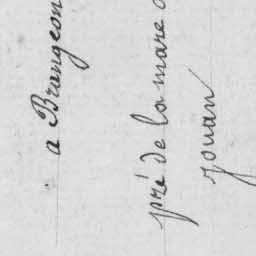 a Brangeon
pré de la mare
jouan